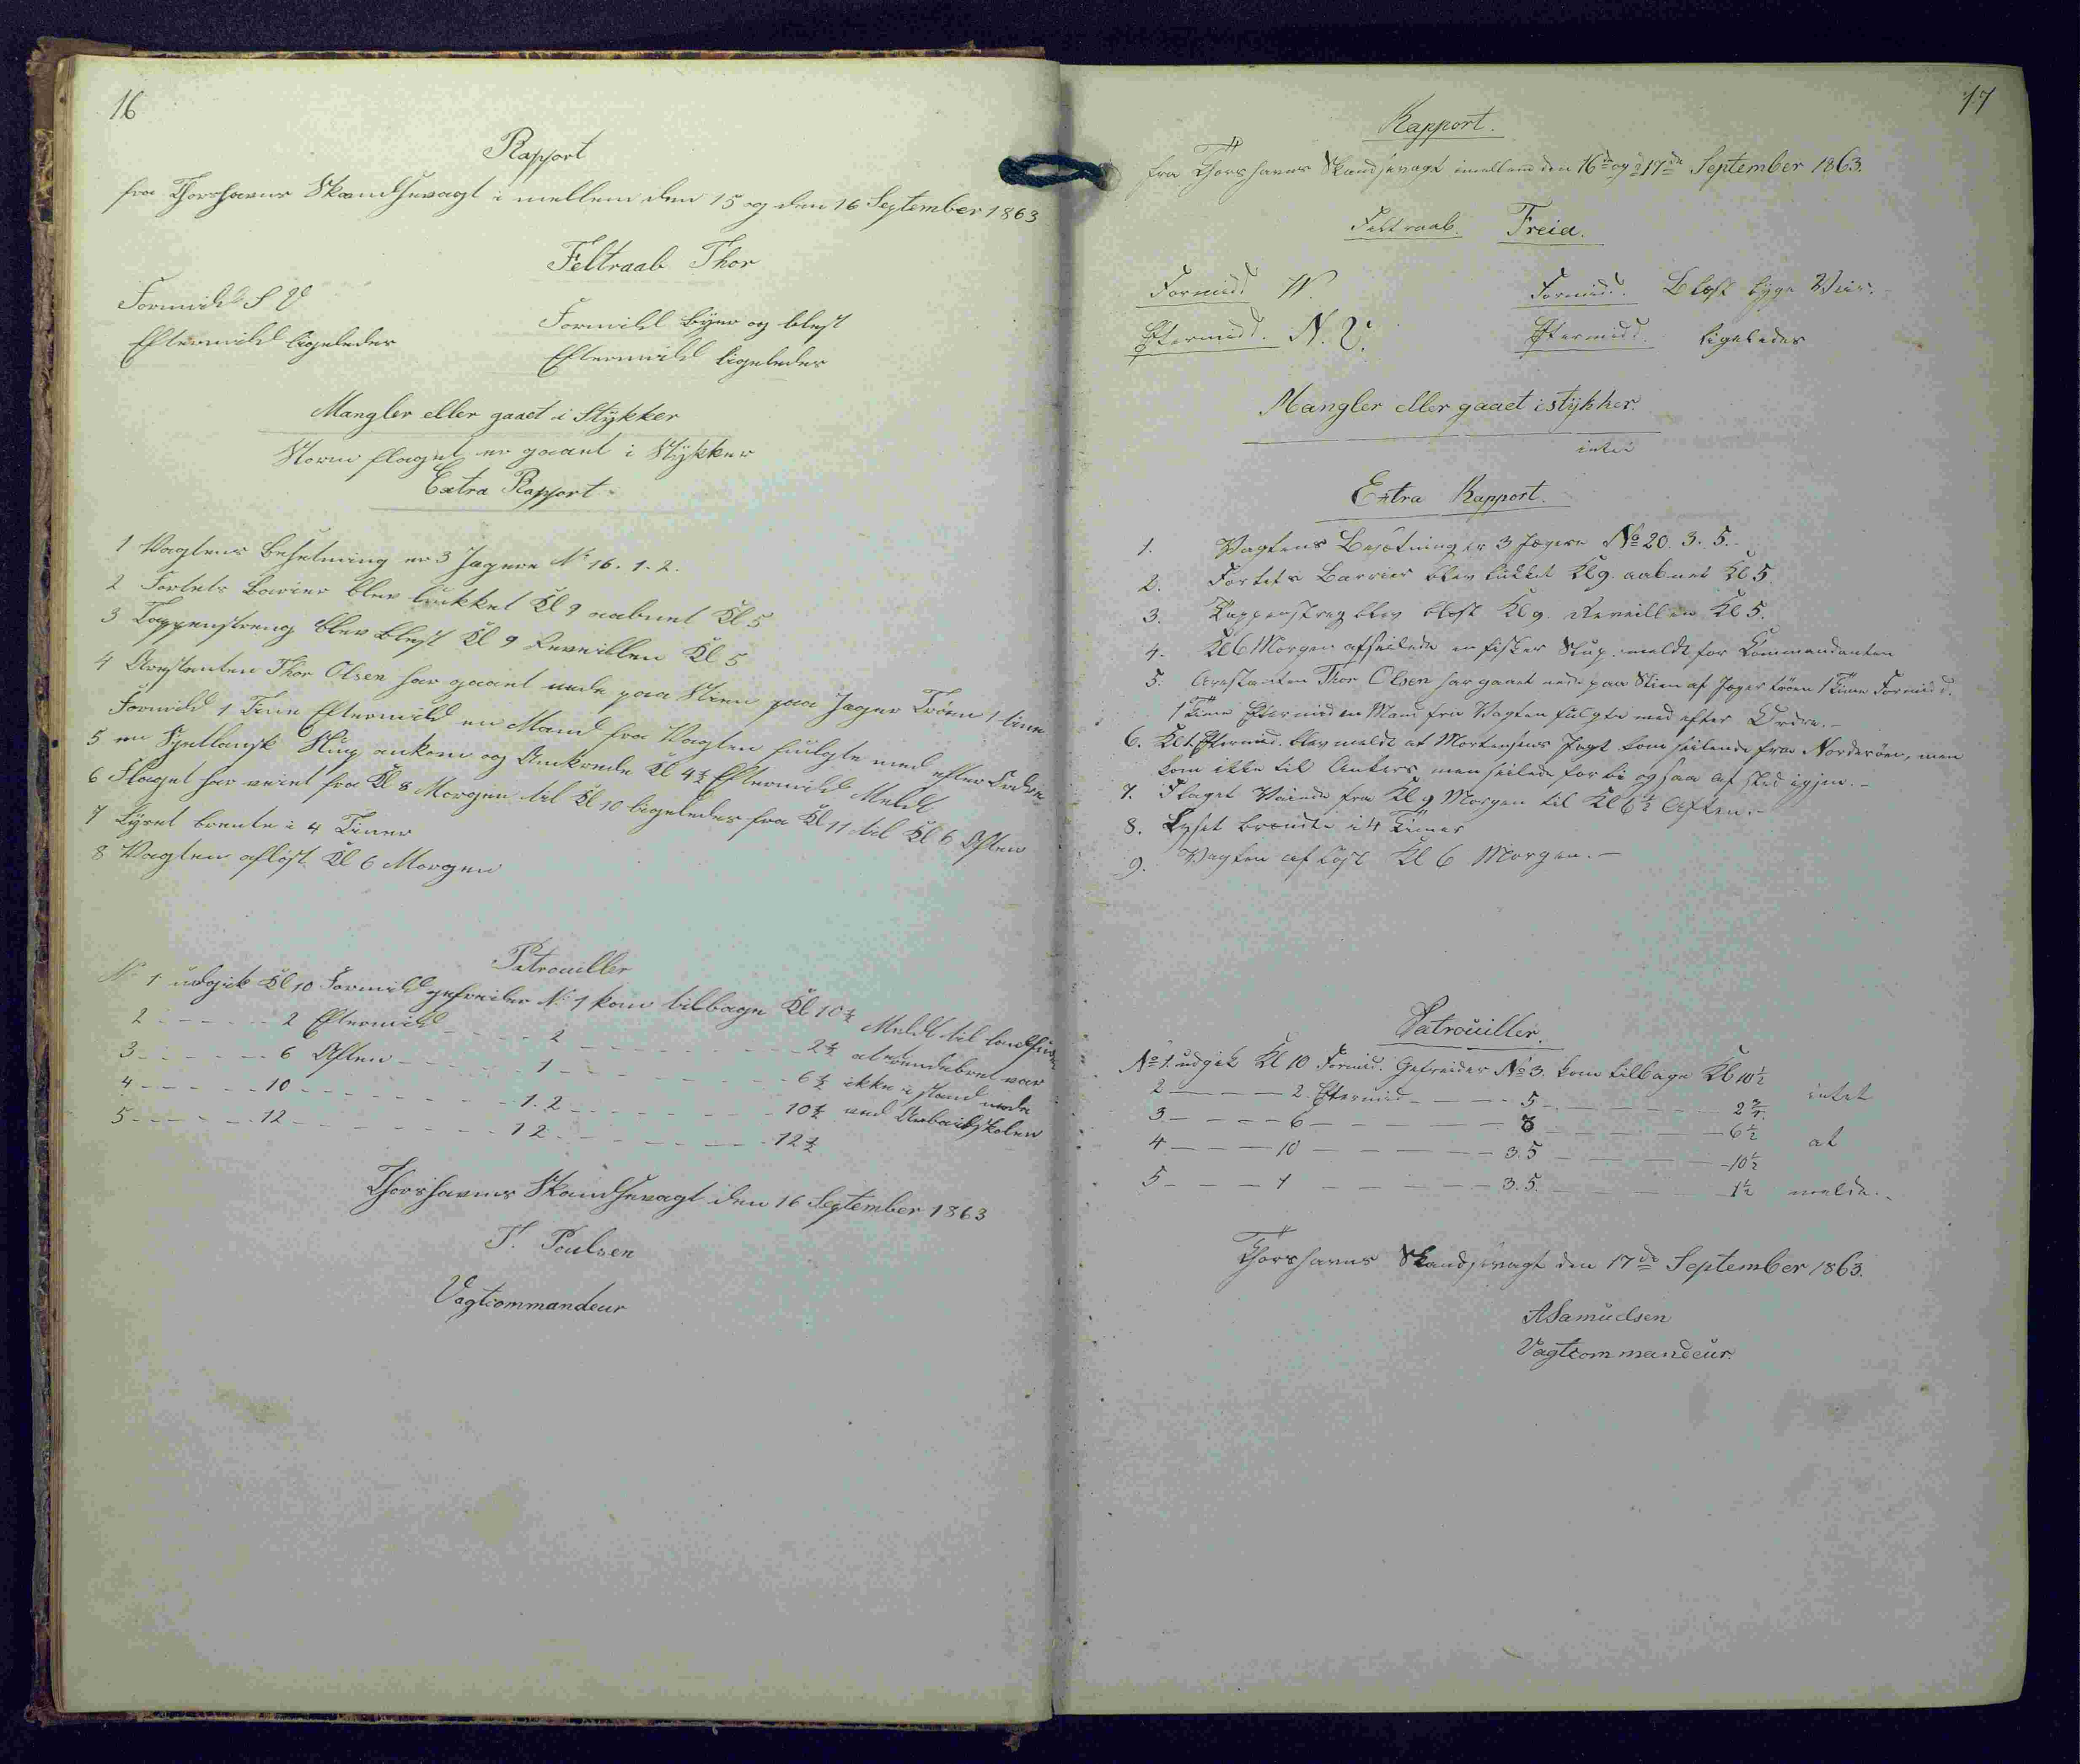 16
Rapport
fra Thorshavns Skandsevagt i mellem den 15 og den 16 September 1863
Feltraab Thor
Formidd S V
Eftermidd ligeledes
Formidd Byer og blest
Eftermidd ligeledes
Mangler eller gaaet i Stykker
Storm flaget er gaaet i Stykker
Extra Rapport
1 Vagtens Besetning er 3 Jagere No 16. 1. 2.
2 Fortets Barier blev lukket Kl 9 aabnet Kl 5
3 Tappenstreng blev blest Kl 9 Reveillen Kl 5
4 Arestanten Thor Olsen har gaaet nede paa Stien paa Jager Trøen 1 time
Formidd 1 Time Eftermidd en Mand fra Vagten fulgte med efter Ordre
5 en Sjetlansk Slup ankom og Ankrede Kl 4½ Eftermidd Meldt
6 Flaget har veiet fra Kl 8 Morgen til Kl 10 ligeledes fra Kl 11 til Kl 6 Aften
7 Lyset brente i 4 Timer
8 Vagten afløst Kl 6 Morgen
Patrouiller
No 1 udgik Kl 10 Formidd gefreider No 1 kom tilbage Kl 10½ Meldt til
2 - - - - - 2 Eftermidd - - - - 2 - - - - - - - - 2½ at var
3 - - - - - 6 Aften - - - - - 1 - - - - - - - - 6½ ikke i stand nede
4 - - - - - 10 - - - - - - - - 1. 2 - - - - - - - - 10½ ved Arbeidskolen
5 - - - - - 12 - - - - - - - - 1 2 - - - - - - - - 12½
Thorshavns Skandsevagt den 16 September 1863
Poulsen
Vagtcommandeur
17
Rapport.
fra Thorshavns Skandsevagt imellem den 16de og d 17de September 1863.
Feltraab. Freia.
Formidd W.
Formidd. Blæst byge Veir.
Eftermidd. N. V.
Eftermidd. ligeledes
Mangler eller gaaet istykker.
intet
Extra Rapport.
1. Vagtens Besætning er 3 Jægere No 20. 3. 5.
2. Fortets Barrier blev lukket Kl 9. aabnet Kl 5.
3. Tappenstreg blev blæst Kl 9. Reveillen Kl 5.
4. Kl 6 Morgen afseilede en fisker Slup. meldt for Commandanten
5. Arestanten Thor Olsen har gaaet nede paa Stien af Jæger trøen 1 Time Formidd.
1 Time Eftermid en Mand fra Vagten fulgte med efter Ordre. -
6. Kl 1. Eftermid. blev meldt at Mortensens Jagt kom seilende fra Norderøen, men
kom ikke til Ankers, men seilede forbi og saa af sted igjen. -
7. Flaget Vaiede fra Kl 9 Morgen til Kl 6½ Aften. -
8. Lyset brendte i 4 Timer
9. Vagten afløst Kl 6 Morgen. -
Patrouiller.
No 1. udgik Kl 10 Formid. Gefreider No 3. kom tilbage Kl 10½
2 - - - 2. Eftermid - - - - 5 - - - - - - 2½ intet
3. - - - - 6 - - - - - - 3 - - - - - - 6½
4 - - - - 10 - - - - - - 3. 5 - - - - - - 10½ at
5 - - - - 1 - - - - - - 3. 5. - - - - - - 1½ melde. -
Thorshavns Skandsevagt den 17de September 1863.
ASamuelsen
Vagtcommandeur.